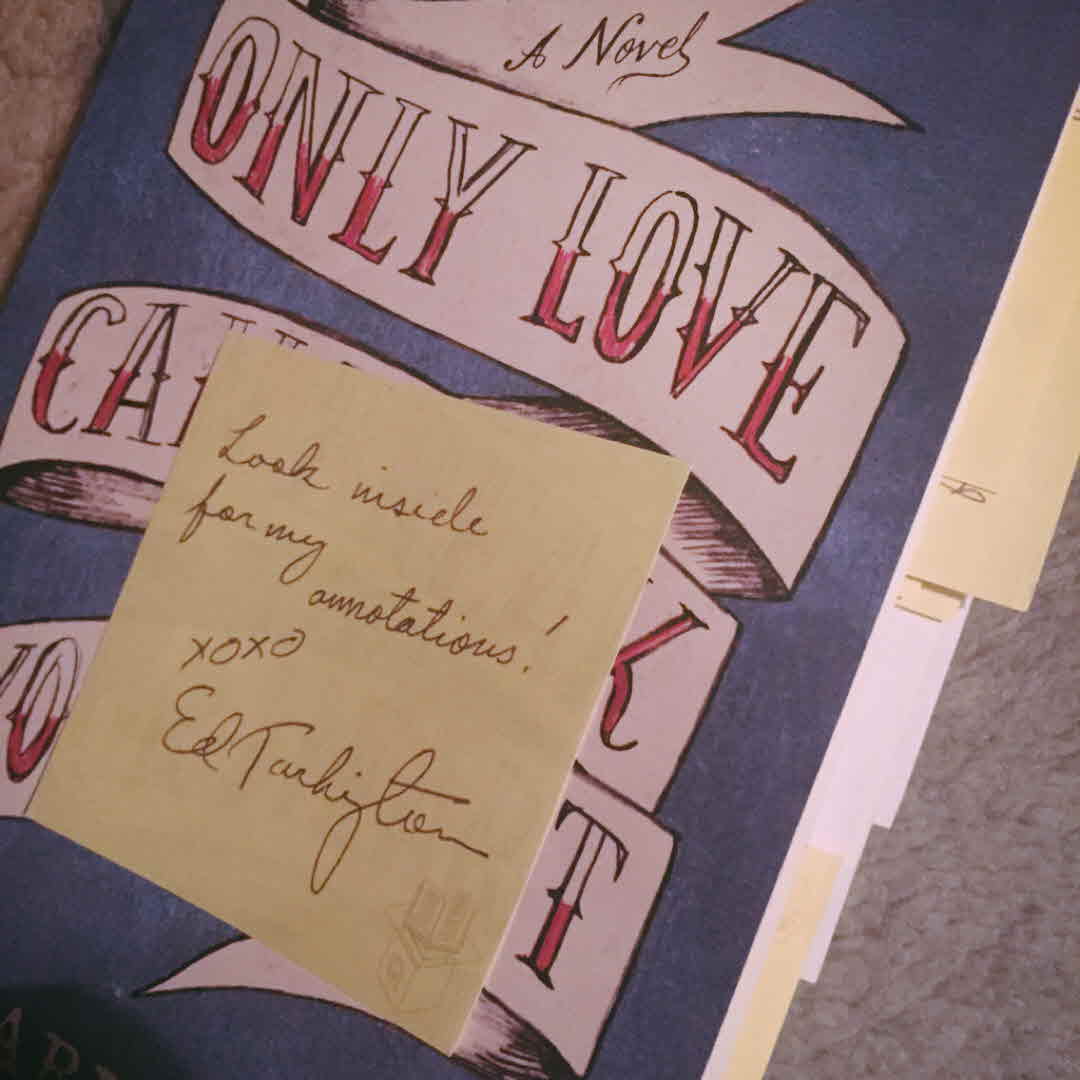 A Novel
ONLY LOVE
CAN
K
T
Look inside
for my
annotations!
xoxo
Ed Tarkington